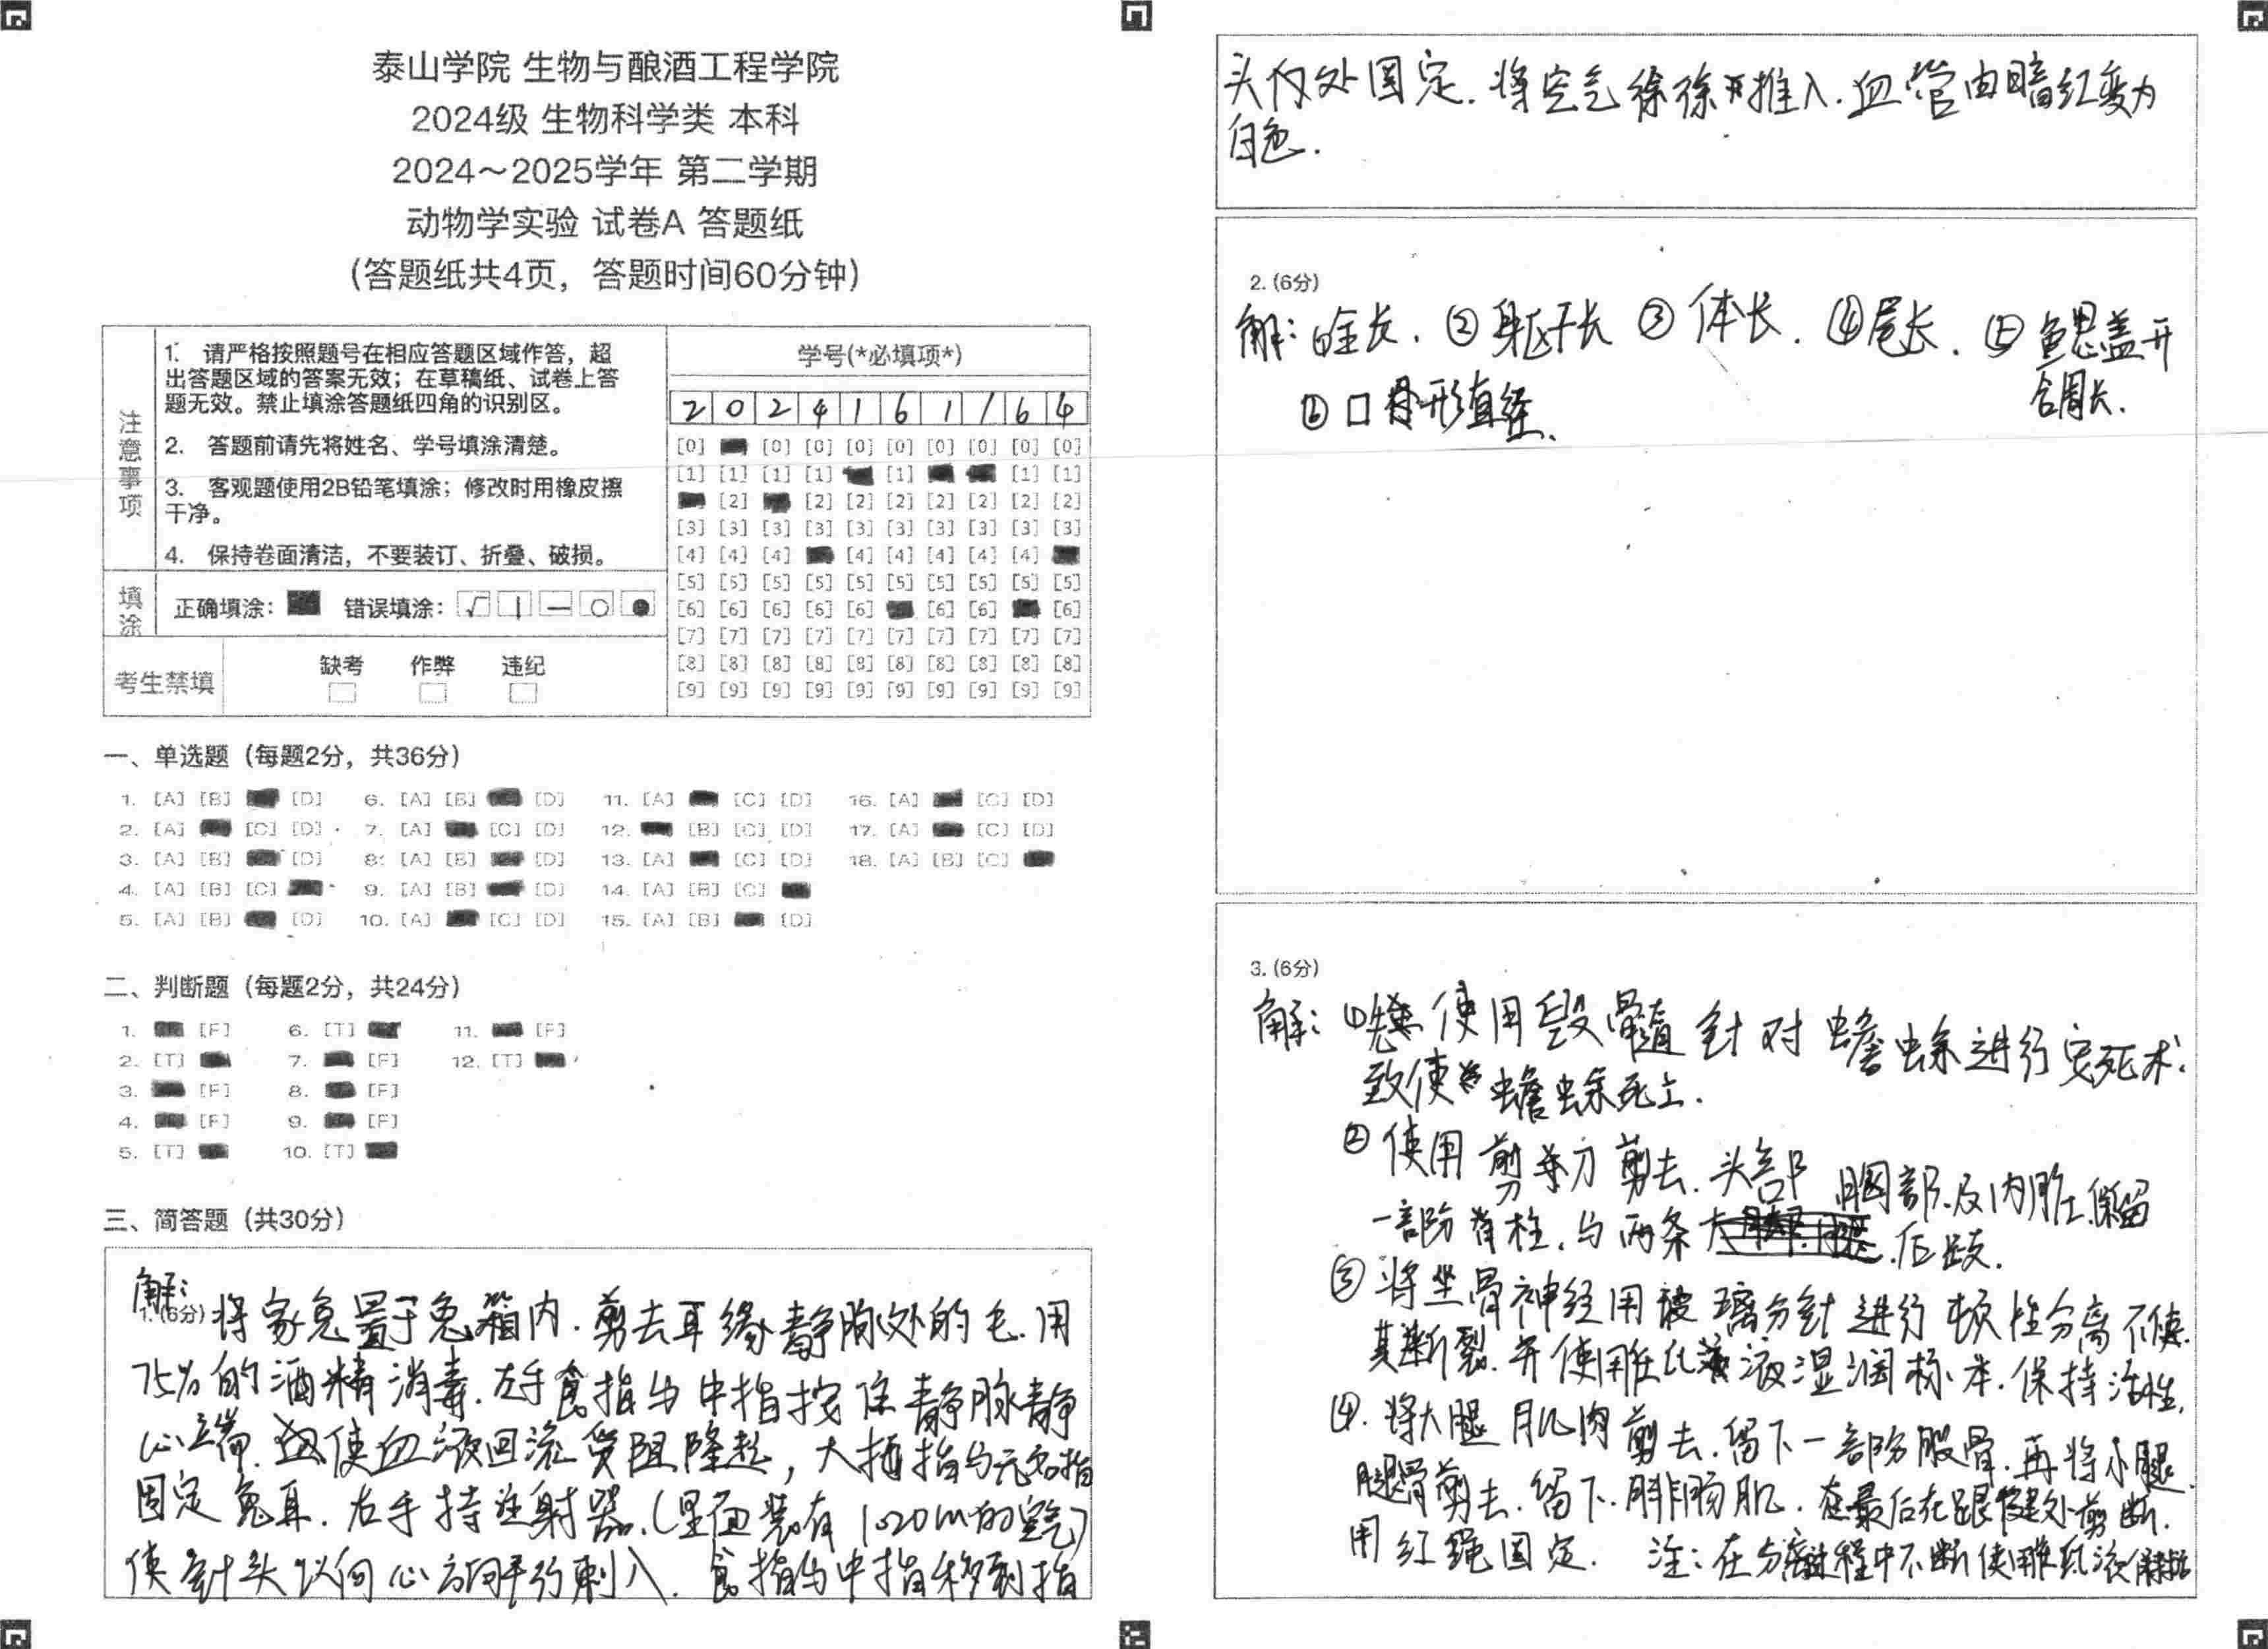 泰山学院 生物与酿酒工程学院
2024级 生物科学类 本科
2024～2025学年 第二学期
动物学实验 试卷A 答题纸
(答题纸共4页，答题时间60分钟)
注意事项
1. 请严格按照题号在相应答题区域作答，超
出答题区域的答案无效；在草稿纸、试卷上答
题无效。禁止填涂答题纸四角的识别区。
2. 答题前请先将姓名、学号填涂清楚。
3. 客观题使用2B铅笔填涂；修改时用橡皮擦
干净。
4. 保持卷面清洁，不要装订、折叠、破损。
填涂
正确填涂： 错误填涂：
考生禁填
缺考 作弊 违纪
学号(*必填项*)
2 0 2 4 1 6 1 1 6 4
[0] [0] [0] [0] [0] [0] [0] [0] [0]
[1] [1] [1] [1] [1] [1] [1]
[2] [2] [2] [2] [2] [2] [2] [2]
[3] [3] [3] [3] [3] [3] [3] [3] [3] [3]
[4] [4] [4] [4] [4] [4] [4] [4]
[5] [5] [5] [5] [5] [5] [5] [5] [5] [5]
[6] [6] [6] [6] [6] [6] [6] [6]
[7] [7] [7] [7] [7] [7] [7] [7] [7] [7]
[8] [8] [8] [8] [8] [8] [8] [8] [8] [8]
[9] [9] [9] [9] [9] [9] [9] [9] [9] [9]
一、单选题（每题2分，共36分）
1. [A] [B] [D] 6. [A] [B] [D] 11. [A] [C] [D] 16. [A] [C] [D]
2. [A] [C] [D] 7. [A] [C] [D] 12. [B] [C] [D] 17. [A] [C] [D]
3. [A] [B] [D] 8. [A] [B] [D] 13. [A] [C] [D] 18. [A] [B] [C]
4. [A] [B] [C] 9. [A] [B] [D] 14. [A] [B] [C]
5. [A] [B] [D] 10. [A] [C] [D] 15. [A] [B] [D]
二、判断题（每题2分，共24分）
1. [F] 6. [T] 11. [F]
2. [T] 7. [F] 12. [T]
3. [F] 8. [F]
4. [F] 9. [F]
5. [T] 10. [T]
三、简答题（共30分）
解：
1. (6分) 将家兔置于兔箱内.剪去耳缘静脉处的毛.用
75%的酒精消毒.左手食指与中指按住静脉静
心端.使血液回流受阻隆起，大拇指与无名指
固定兔耳.右手持注射器.(里面装有10~20ml的空气)
使针头以向心方向平行刺入.食指与中指移到指
头内处固定.将空气徐徐推入.血管由暗红变为
白色.
2. (6分)
解：①全长.②躯干长③体长.④尾长.⑤鳃盖开
合周长.
⑥口 形直径.
3. (6分)
解：①先使用毁髓针对蟾蜍进行实死术.
致使蟾蜍死亡.
②使用剪刀剪去.头部 胸部.及内脏.保留
一部分脊柱.与两条 后肢.
③将坐骨神经用玻璃分针进行钝性分离不使
其断裂.并使用任氏液湿润标本.保持活性.
④.将大腿肌肉剪去.留下一部分股骨.再将小腿
腿骨剪去.留下.腓肠肌.最后在跟腱处剪断.
用红绳固定. 注：在分离过程中不断使用任氏液